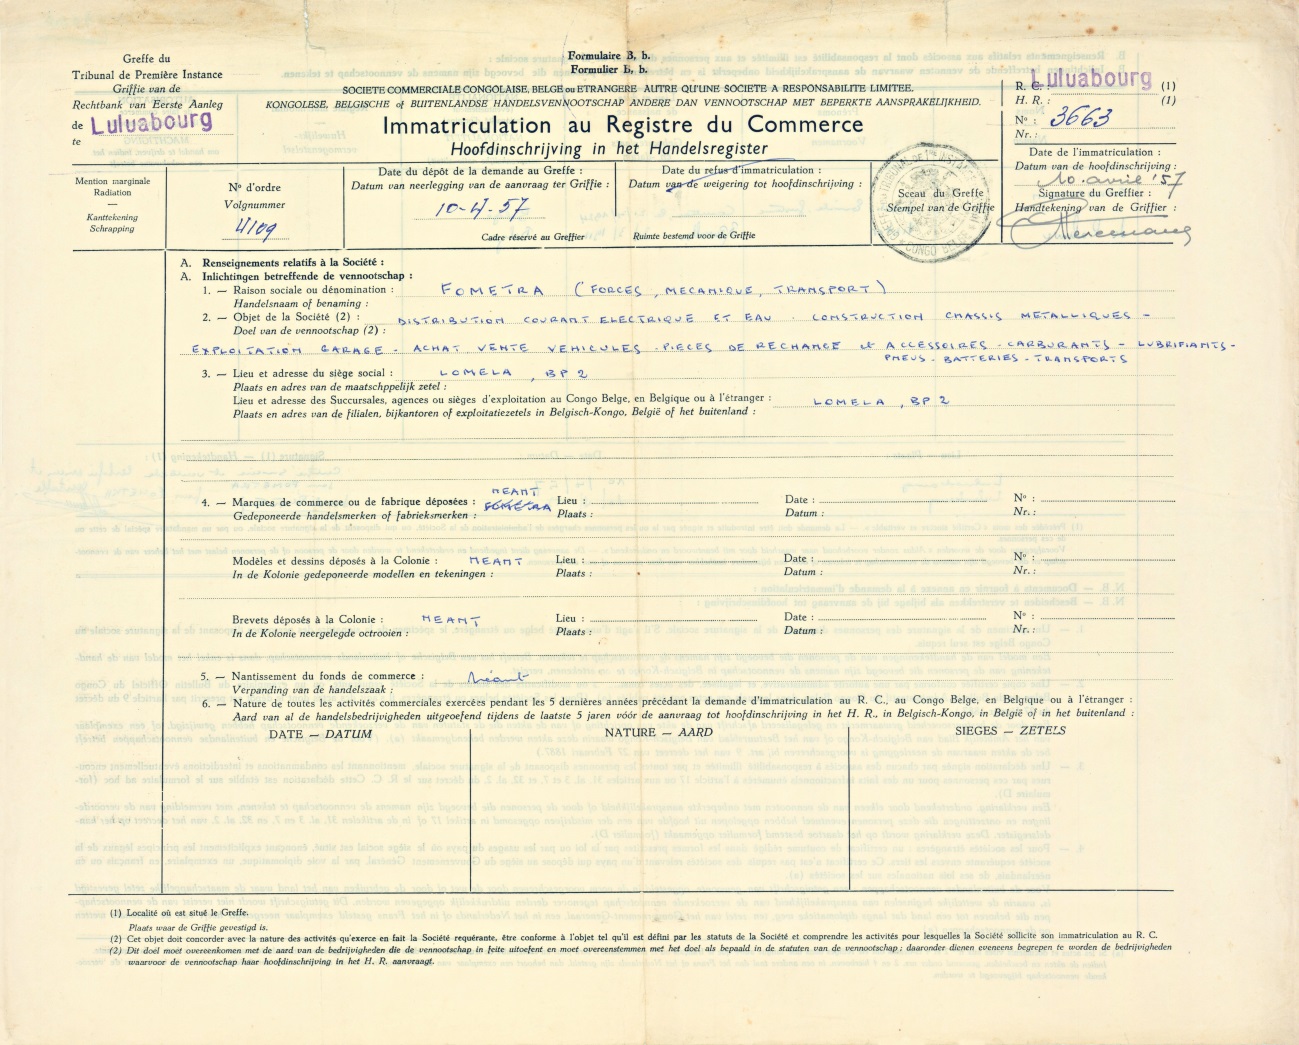 Greffe du
Tribunal de Première Instance
Griffie van de
Rechtbank van Eerste Aanleg
de Luluabourg
te
Formulaire B, b.
Formulier B, b.
SOCIETE COMMERCIALE CONGOLAISE, BELGE ou ETRANGERE AUTRE QU'UNE SOCIETE A RESPONSABILITE LIMITEE.
KONGOLESE, BELGISCHE of BUITENLANDSE HANDELSVENNOOTSCHAP ANDERE DAN VENNOOTSCHAP MET BEPERKTE AANSPRAKELIJKHEID.
Immatriculation au Registre du Commerce
Hoofdinschrijving in het Handelsregister
R. C. : Luluabourg (1)
H. R. : (1)
Nº : 3663
Nr. :
Date de l'immatriculation :
Datum van de hoofdinschrijving :
10 avril '57
Signature du Greffier :
Handtekening van de Griffier :
Mention marginale
Radiation
—
Kanttekening
Schrapping
Nº d'ordre
Volgnummer
4109
Date du dépôt de la demande au Greffe :
Datum van neerlegging van de aanvraag ter Griffie :
10-4-57
Cadre réservé au Greffier
Date du refus d'immatriculation :
Datum van de weigering tot hoofdinschrijving :
Ruimte bestemd voor de Griffie
Sceau du Greffe
Stempel van de Griffie
A. Renseignements relatifs à la Société :
A. Inlichtingen betreffende de vennootschap :
1. — Raison sociale ou dénomination : FOMETRA (FORCES, MECANIQUE, TRANSPORT)
Handelsnaam of benaming :
2. — Objet de la Société (2) : DISTRIBUTION COURANT ELECTRIQUE ET EAU - CONSTRUCTION CHASSIS METALLIQUES -
Doel van de vennootschap (2) :
EXPLOITATION GARAGE - ACHAT VENTE VEHICULES - PIECES DE RECHANGE et ACCESSOIRES - CARBURANTS - LUBRIFIANTS -
PNEUS - BATTERIES - TRANSPORTS
3. — Lieu et adresse du siège social : LOMELA, BP 2
Plaats en adres van de maatschppelijk zetel :
Lieu et adresse des Succursales, agences ou sièges d'exploitation au Congo Belge, en Belgique ou à l'étranger : LOMELA, BP 2
Plaats en adres van de filialen, bijkantoren of exploitatiezetels in Belgisch-Kongo, België of het buitenland :
NEANT
4. — Marques de commerce ou de fabrique déposées : FOMETRA Lieu : Date : Nº :
Gedeponeerde handelsmerken of fabrieksmerken : Plaats : Datum : Nr. :
Modèles et dessins déposés à la Colonie : NEANT Lieu : Date : Nº :
In de Kolonie gedeponeerde modellen en tekeningen : Plaats : Datum : Nr. :
Brevets déposés à la Colonie : NEANT Lieu : Date : Nº :
In de Kolonie neergelegde octrooien : Plaats : Datum : Nr. :
5. — Nantissement du fonds de commerce : Néant
Verpanding van de handelszaak :
6. — Nature de toutes les activités commerciales exercées pendant les 5 dernières années précédant la demande d'immatriculation au R. C., au Congo Belge, en Belgique ou à l'étranger :
Aard van al de handelsbedrijvigheden uitgeoefend tijdens de laatste 5 jaren vóór de aanvraag tot hoofdinschrijving in het H. R., in Belgisch-Kongo, in België of in het buitenland :
DATE — DATUM NATURE — AARD SIEGES — ZETELS
(1) Localité où est situé le Greffe.
Plaats waar de Griffie gevestigd is.
(2) Cet objet doit concorder avec la nature des activités qu'exerce en fait la Société requérante, être conforme à l'objet tel qu'il est défini par les statuts de la Société et comprendre les activités pour lesquelles la Société sollicite son immatriculation au R. C.
(2) Dit doel moet overeenkomen met de aard van de bedrijvigheden die de vennootschap in feite uitoefent en moet overeenstemmen met het doel als bepaald in de statuten van de vennootschap; daaronder dienen eveneens begrepen te worden de bedrijvigheden
waarvoor de vennootschap haar hoofdinschrijving in het H. R. aanvraagt.